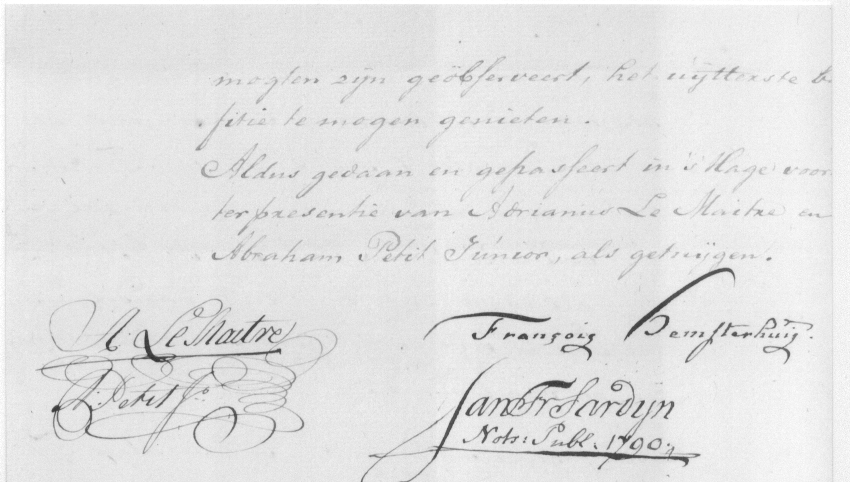 mogten zijn geöbserveert, het uÿtterste
sitie te mogen genieten.
Aldus gedaan en gepasseert in 's Hage voor
ter presentie van Adrianus Le Maitre en
Abraham Petit Júnior, als getuÿgen.
A. Le Maitre
A: Petit Jr.
François Hemsterhuis.
Jan Fr Sardÿn
Nots: Publ. 1790.